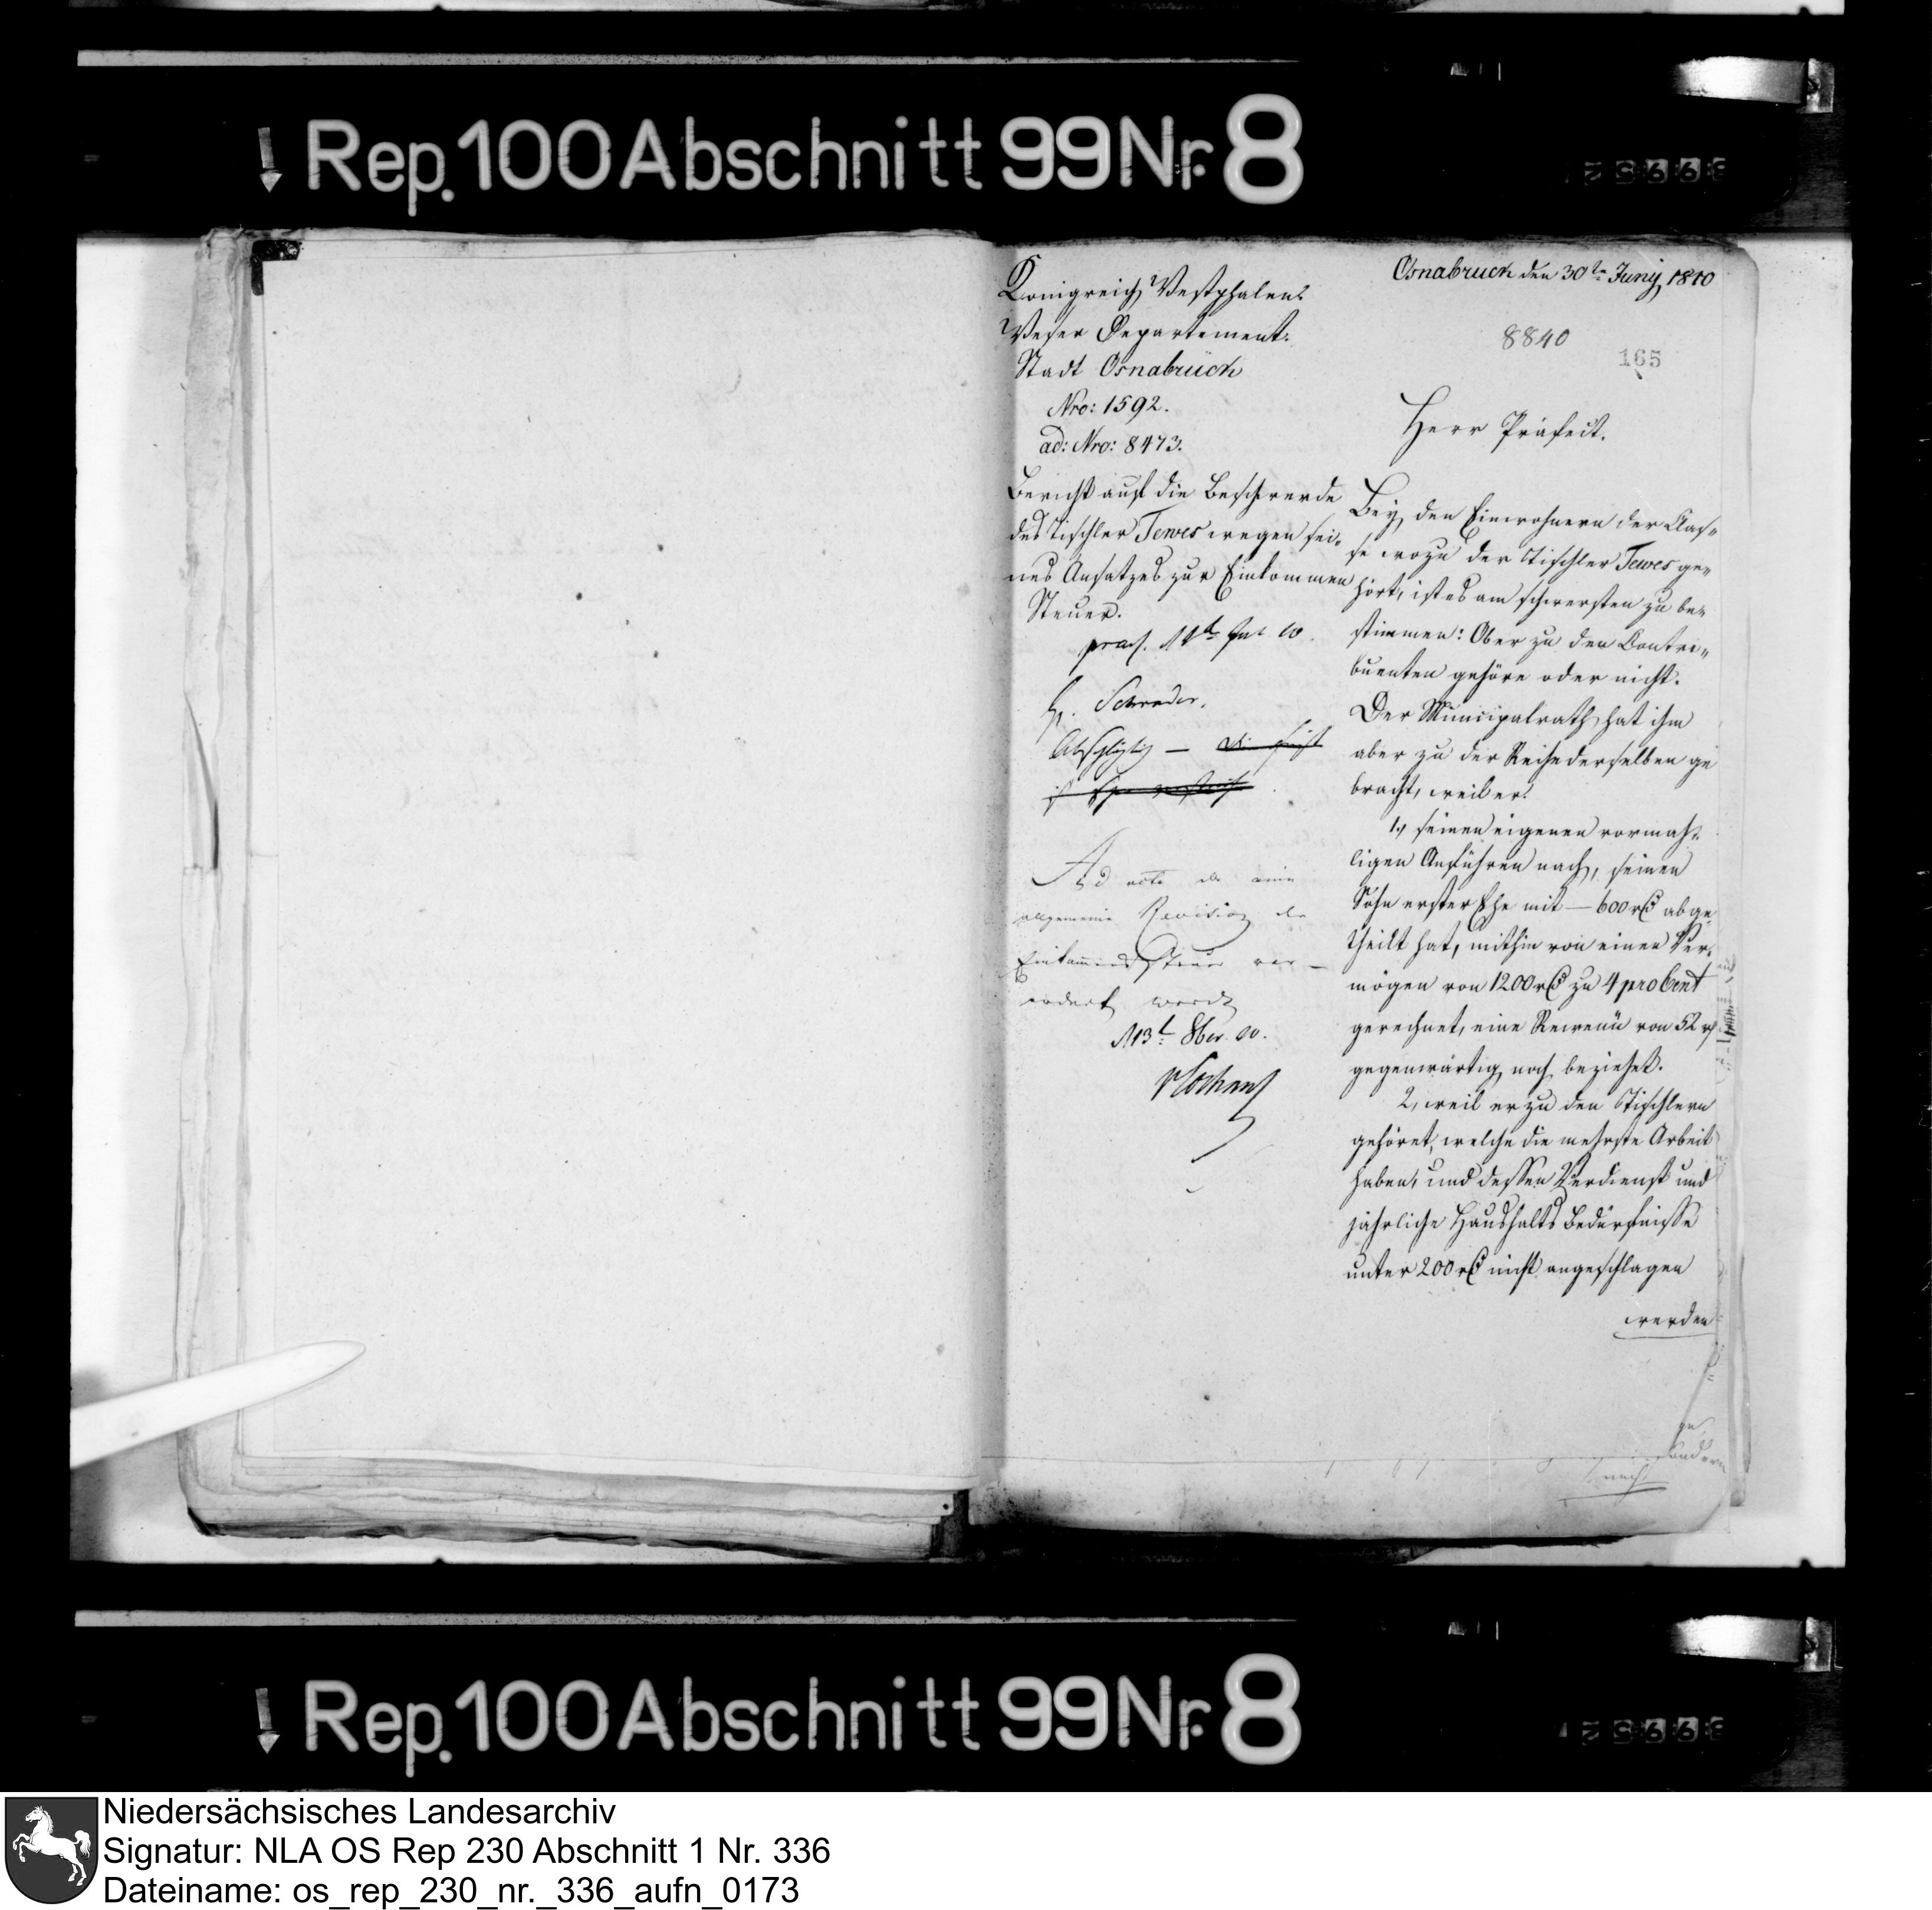 Rep. 100 Abschnitt 99 Nr. 8
Königreich Westphalen.
Weser Departement.
Stadt Osnabrück
Nro: 1592.
ad: Nro: 8473.
Bericht auf die Beschwerde
des Tischler Tewes wegen sei-
nes Ansatzes zur Einkommen
Steuer.
Schrader.
Abschlägig —
Ad acta da eine
allgemeine Revision der
Einkommensteuer ver-
ordnet worden
13t 8ber 10.
Osnabruck den 30ten Juny 1810
8840
165
Herr Präfect.
Bey den Einwohnern der Clas„
se wozu der Tischler Tewes ge„
hört, ist es am schwersten zu be„
stimmen: Ob er zu den Contri„
buenten gehöre oder nicht.
Der Municipalrath hat ihm
aber zu der Reihe derselben ge
bracht, weil er:
1., seinen eigenen vormah-
ligen Anführen nach, seinen
Sohn erster Ehe mit — 600 rC abge-
theilt hat, mithin von einen Ver-
mögen von 1200 rC zu 4 pro Cent
gerechnet, eine Revenü von 52 r
gegenwärtig noch beziehet.
2, weil er zu den Tischlern
gehöret, welche die mehrste Arbeit
haben, und dessen Verdienst und
jährliche Haushalts Bedürfnisse
unter 200 rC nicht angeschlagen
werden
Rep. 100 Abschnitt 99 Nr. 8
Niedersächsisches Landesarchiv
Signatur: NLA OS Rep 230 Abschnitt 1 Nr. 336
Dateiname: os_rep_230_nr._336_aufn_0173